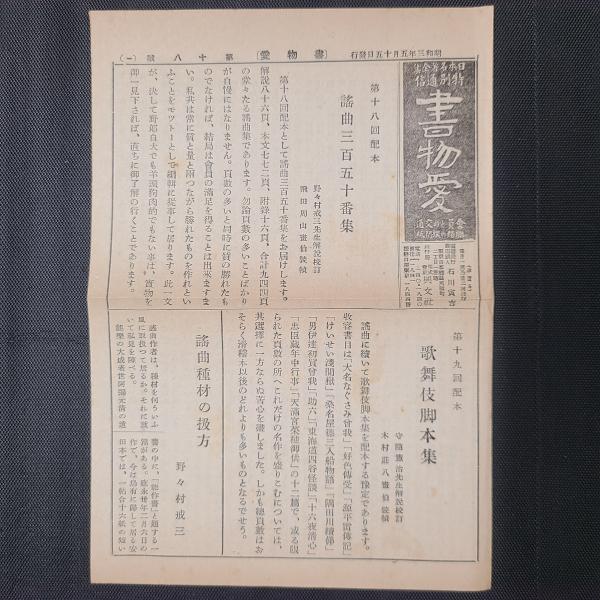 昭和三年五月十五日發行
(書物愛)
第十八號
(一)
日本名著全集
特別通信
書物愛
會員との交通
石川寅吉
興文社
第十八回配本
謠曲三百五十番集
野々村戒三先生解説校訂
飛田周山畫伯裝幀
第十八回配本として謠曲三百五十番集をお届けします。
解説八十六頁、本文七七二頁、附錄十六頁、合計九四四頁
の堂々たる謠曲集であります。勿論頁數の多いことばかり
が自慢にはなりません。頁數の多いと同時に質の勝れたも
のでなければ、結局は會員の滿足を得ることは出來ますま
い。私共は常に質と量と兩つながら勝れたものを作れとい
ふことをモツトーとして編輯に從事して居ります。此一文
が、決して野郎自大でも羊頭狗肉的でもない事は、實物を
御一見下されば、直ちに御了解の行くことであります。
第十九回配本
歌舞伎脚本集
守隨憲治先生解説校訂
木村莊八畫伯裝幀
謠曲に續いて歌舞伎脚本集を配本する豫定であります。
收容書目は「大名なぐさみ曾我」「好色傳受」「源平雷傳記」
「けいせい淺間嶽」「桑名屋德三入船物語」「隅田川續俤」
「男伊達初買曾我」「助六」「東海道四谷怪談」「十六夜淸心」
「忠臣藏年中行事」「天滿宮菜種御供」の十二篇で、或る限
られた頁數の所へこれだけの名作を盛りこむについては、
其選擇に一方ならぬ苦心を費しました。しかも總頁數はお
そらく滑稽本以後のどれよりも多いものとなるでせう。
謠曲種材の扱方
野々村戒三
謠曲作者は、種材を何ういふ
風に取扱つて居るか。それに就
いて私見を陳べる。
能樂の大成者世阿彌元淸の遺
書の中に、「能作書」と題する一
篇がある。應永卅年二月六日の
作で、今は烏有に歸して居る安
田本では、一帖合十六紙の短い